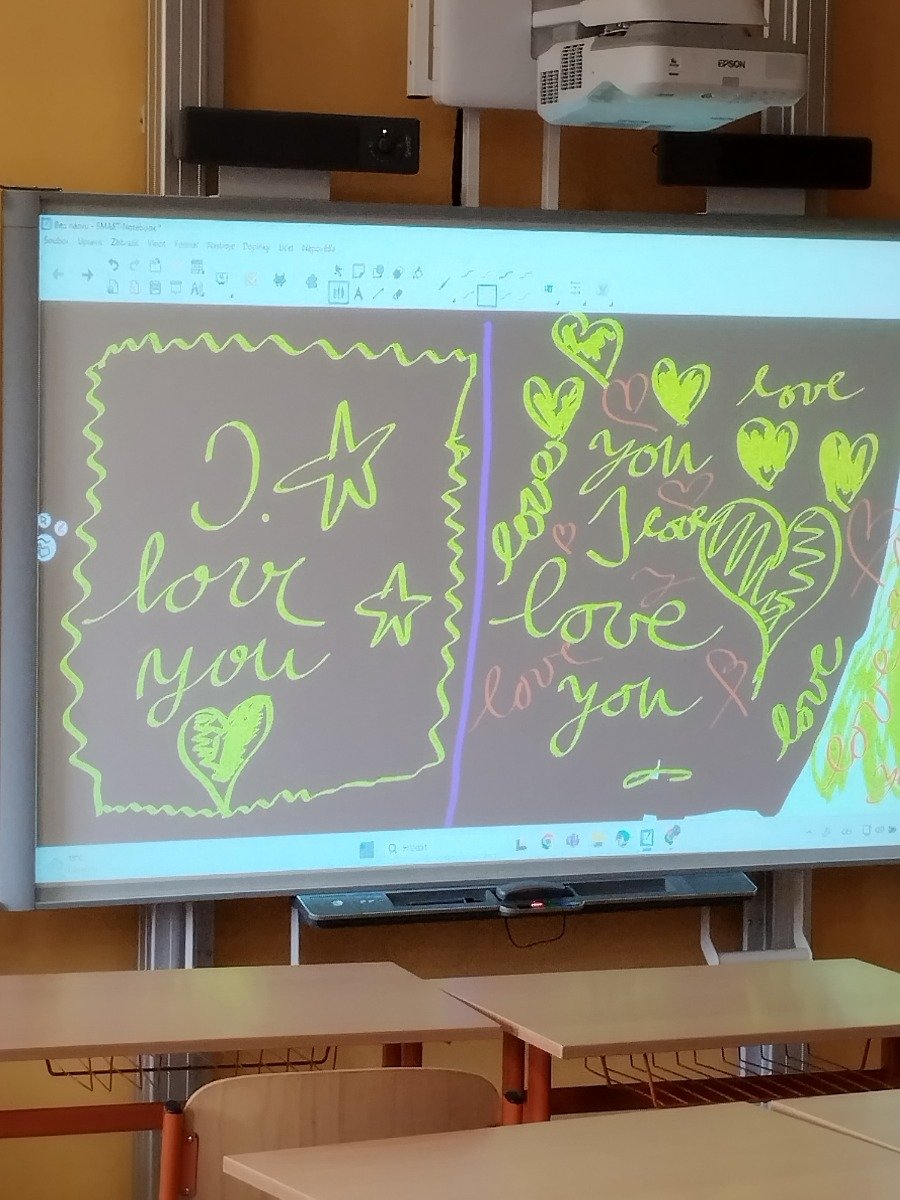 EPSON
Bez názvu - SMART Notebook*
Soubor Upravit Zobrazit Vložit Formát Nástroje Doplňky Účet Nápověda
I.
love
you
love
you
love
I love
love
you
love
love
love